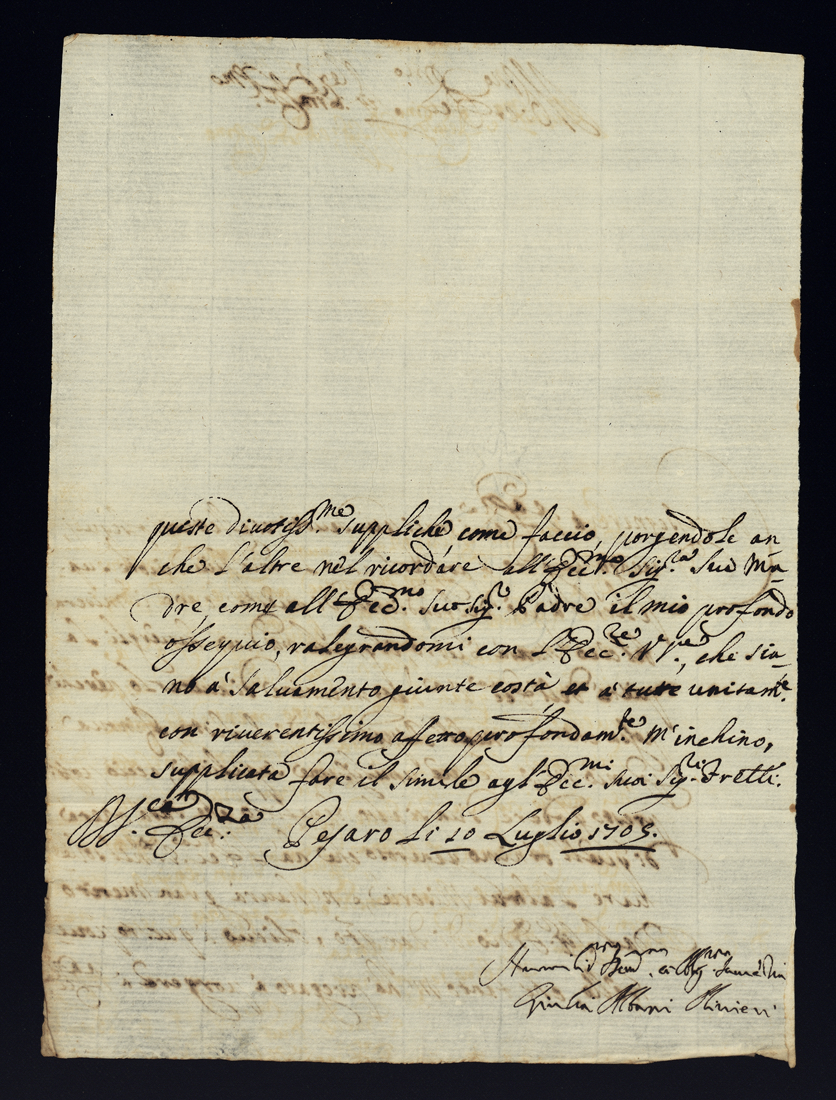 queste divotiss.me suppliche come faccio, porgendole an
che l'altre nel ricordare all'Ecc.ma Sig.ra Sua Ma-
dre, come all'Ecc.mo suo Sig.r Padre il mio profondo
ossequio, ralegrandomi con l'Ecc.ze V.re, che sia-
no à salvamento giunte costà et à tutte unitam.te
con riverentissimo affetto profondam.te m'inchino,
supplicata fare il simile agl'Ecc.mi suoi Sig.ri Fretti.
Ecc.za Pesaro li 10 Luglio 1705.
Giulia Albani Olivieri